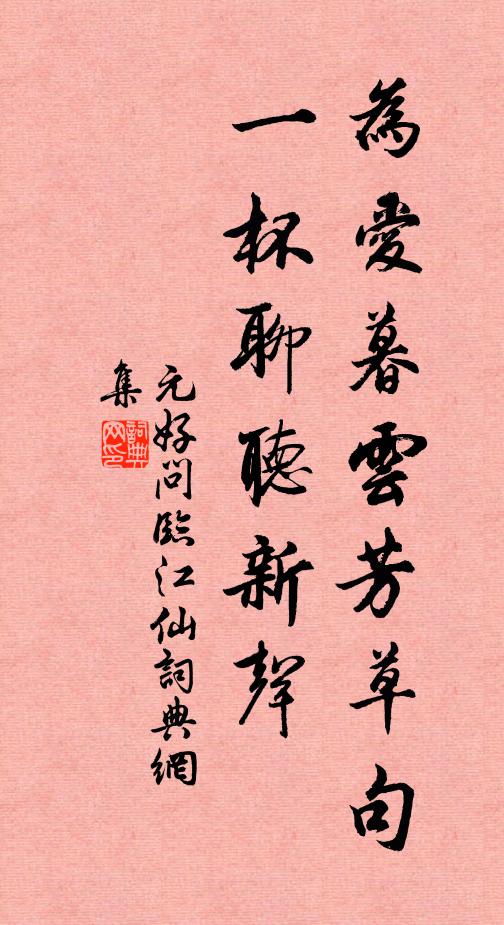 為愛暮雲芳草句
一杯聊聽新聲
元好問臨江仙詞典網
集
詞典网印